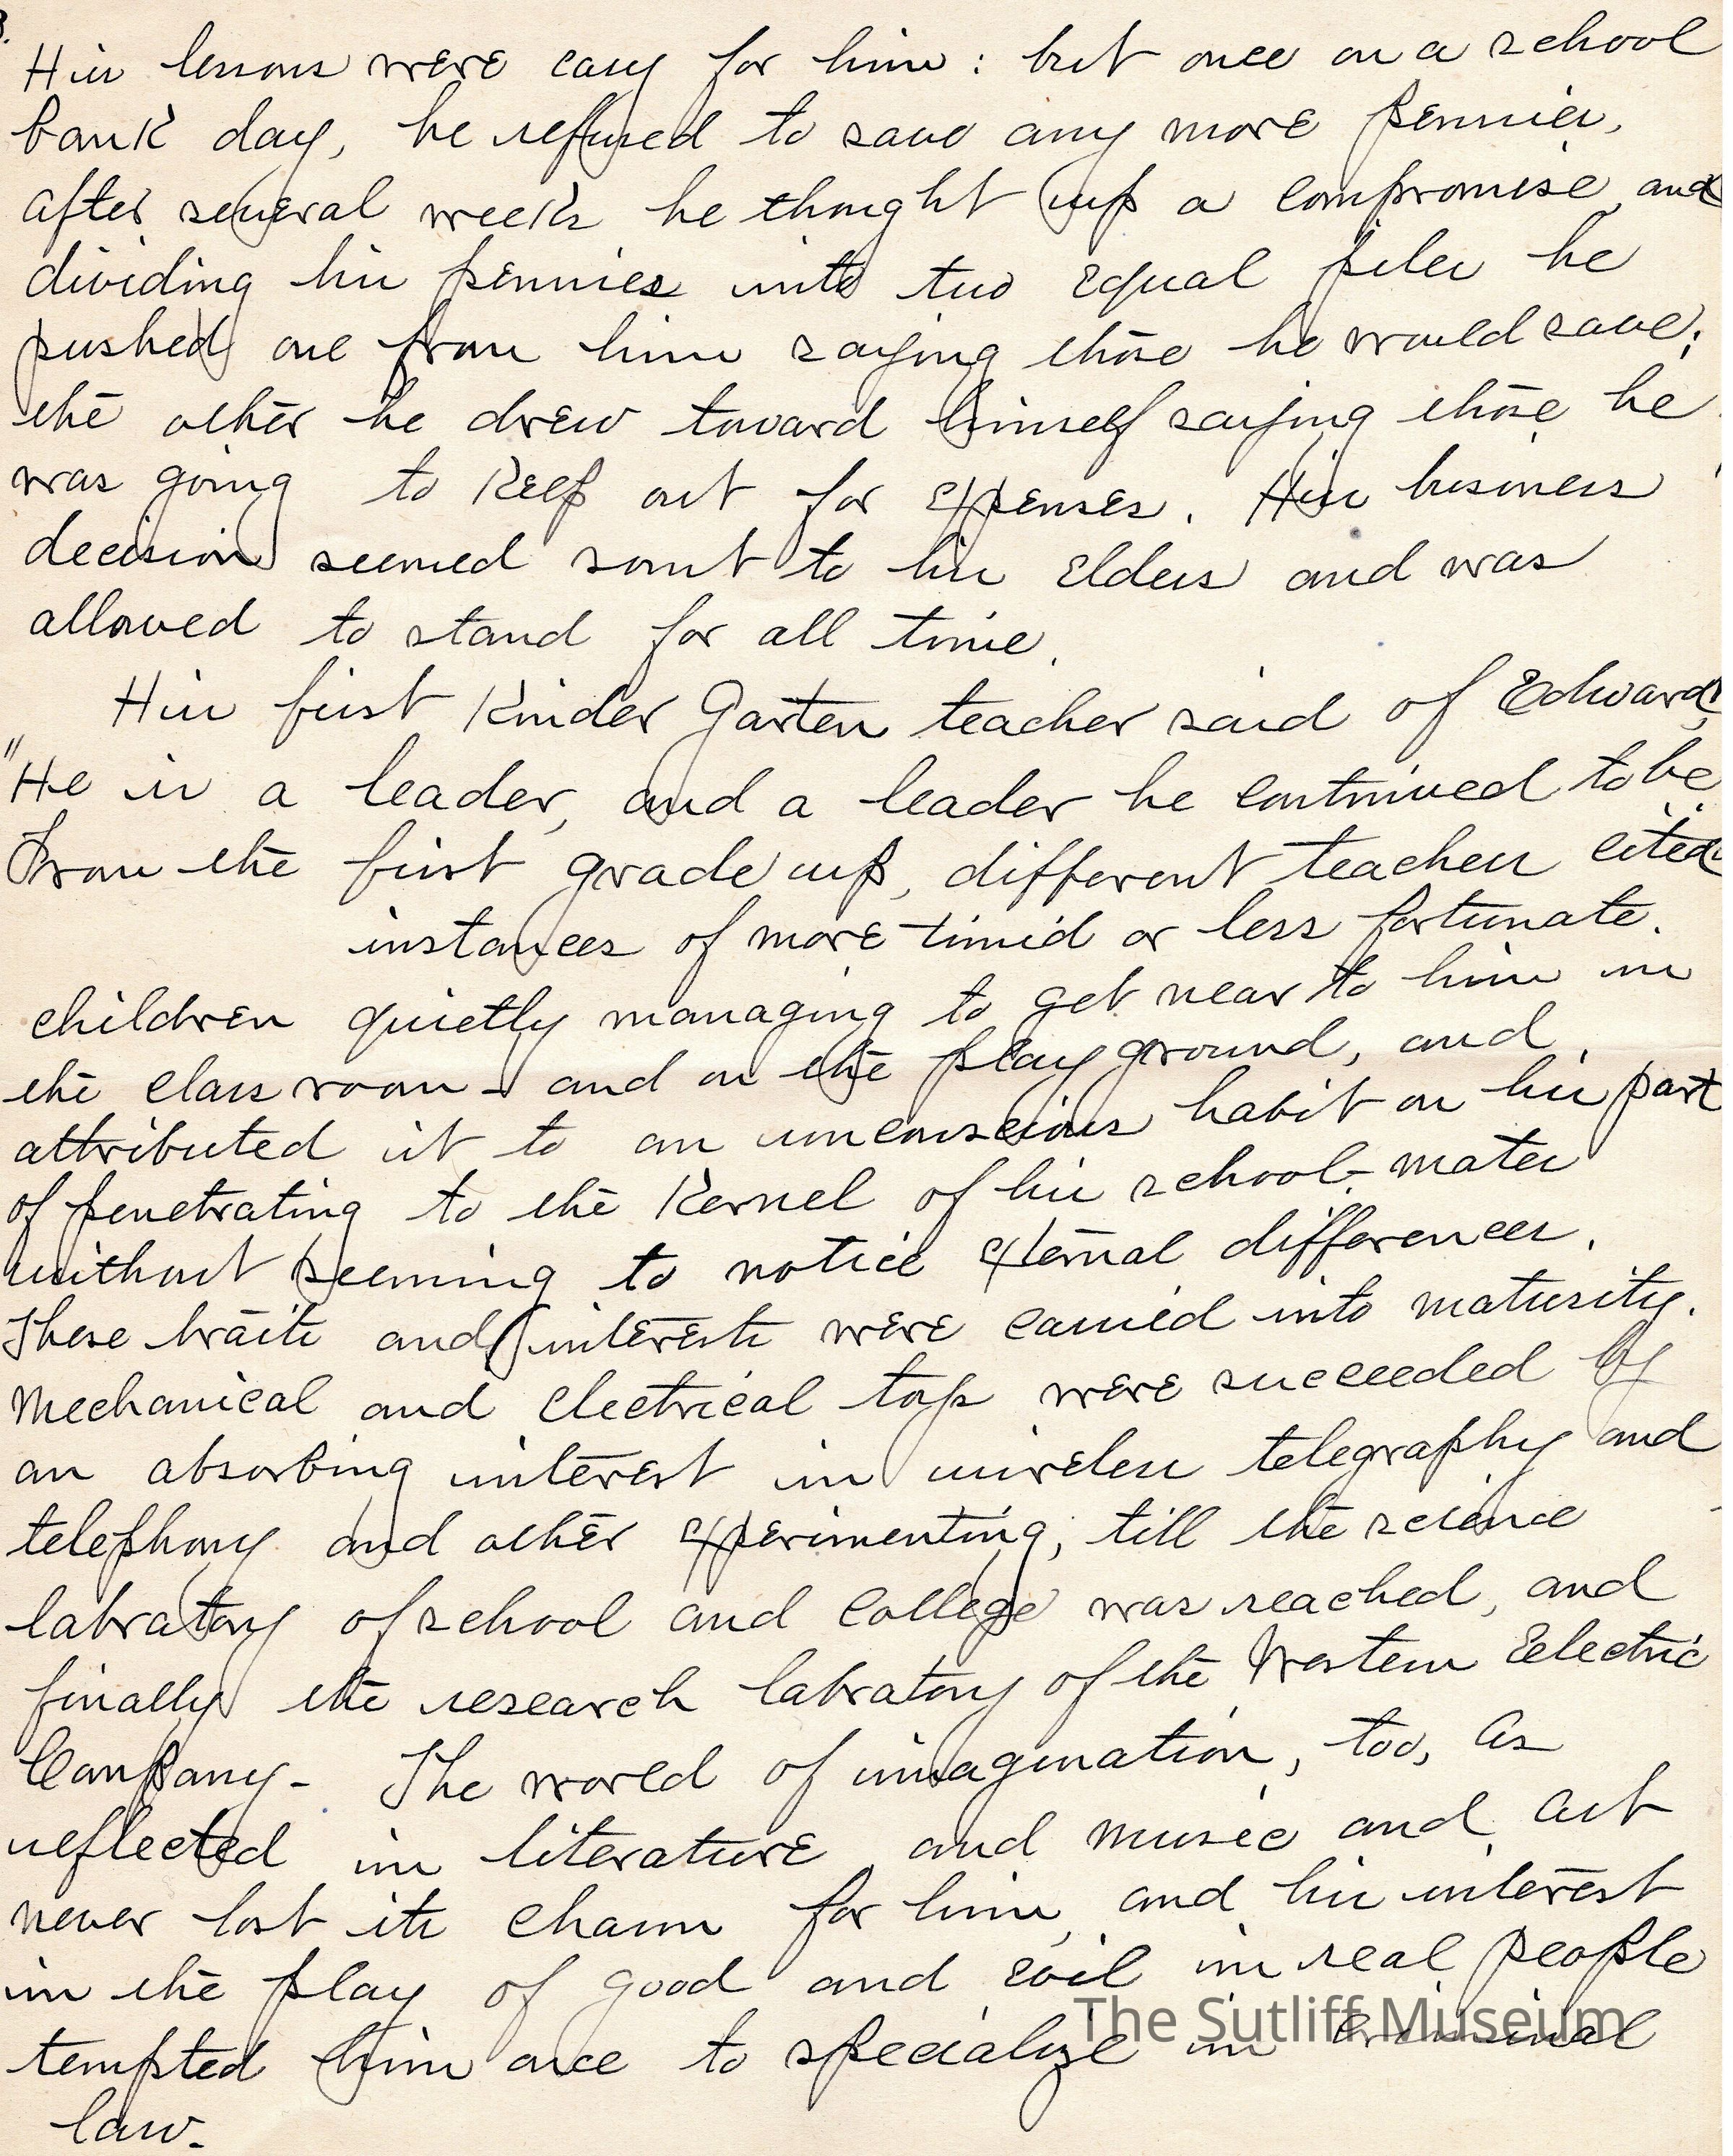 3.
His lessons were easy for him: but once on a school
bank day, he refused to save any more pennies,
after several weeks he thought up a compromise and
dividing his pennies into two equal piles he
pushed one from him saying those he would save;
the other he drew toward himself saying those he
was going to keep out for expenses. His business
decision seemed sount to his elders and was
allowed to stand for all time.
His first Kinder Garten teacher said of Edward,
"He is a leader, and a leader he continued to be
From the first grade up, different teachers cited
instances of more timid or less fortunate.
children quietly managing to get near to him in
the class room - and on the play ground, and
attributed it to an unconscious habit on his part
of penetrating to the kernel of his school-mates
without seeming to notice external differences.
These traits and interests were carried into maturity.
Mechanical and electrical toys were succeeded by
an absorbing interest in wireless telegraphy and
telephony and other experimenting, till the science
labratory of school and college was reached, and
finally the research labratory of the Western Eelectric
Company - The world of imagination, too, as
reflected in literature and music and art
never lost its charm for him, and his interest
in the play of good and evil in real people
tempted him once to specialize in criminal
law.
The Sutliff Museum